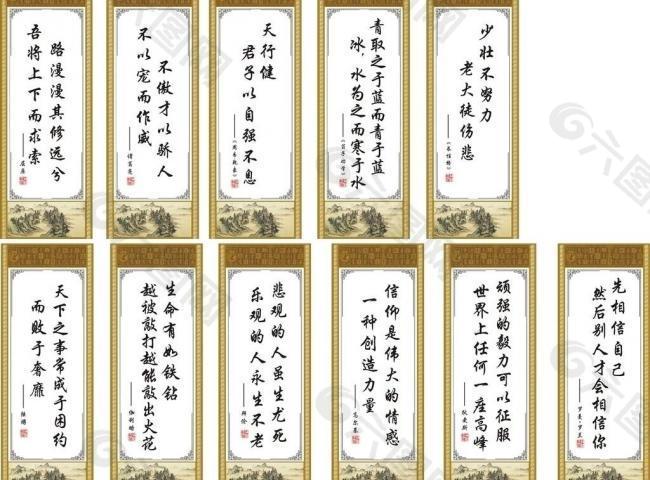 路漫漫其修远兮
吾将上下而求索
——屈原
不傲才以骄人
不以宠而作威
——诸葛亮
天行健
君子以自强不息
青取之于蓝而青于蓝
冰,水为之而寒于水
——《荀子劝学》
少壮不努力
老大徒伤悲
天下之事常成于困约
而败于奢靡
——陆游
生命有如铁钻
越被敲打越能敲出火花
——伽利略
悲观的人虽生尤死
乐观的人永生不老
——拜伦
信仰是伟大的情感
一种创造力量
——高尔基
顽强的毅力可以征服
世界上任何一座高峰
——狄更斯
先相信自己
然后别人才会相信你
——罗曼·罗兰
六图网